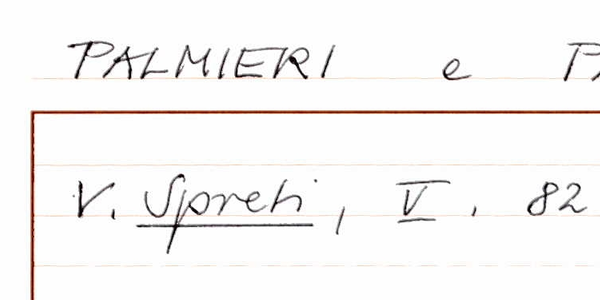 PALMIERI e
V. Spreti, V. 82